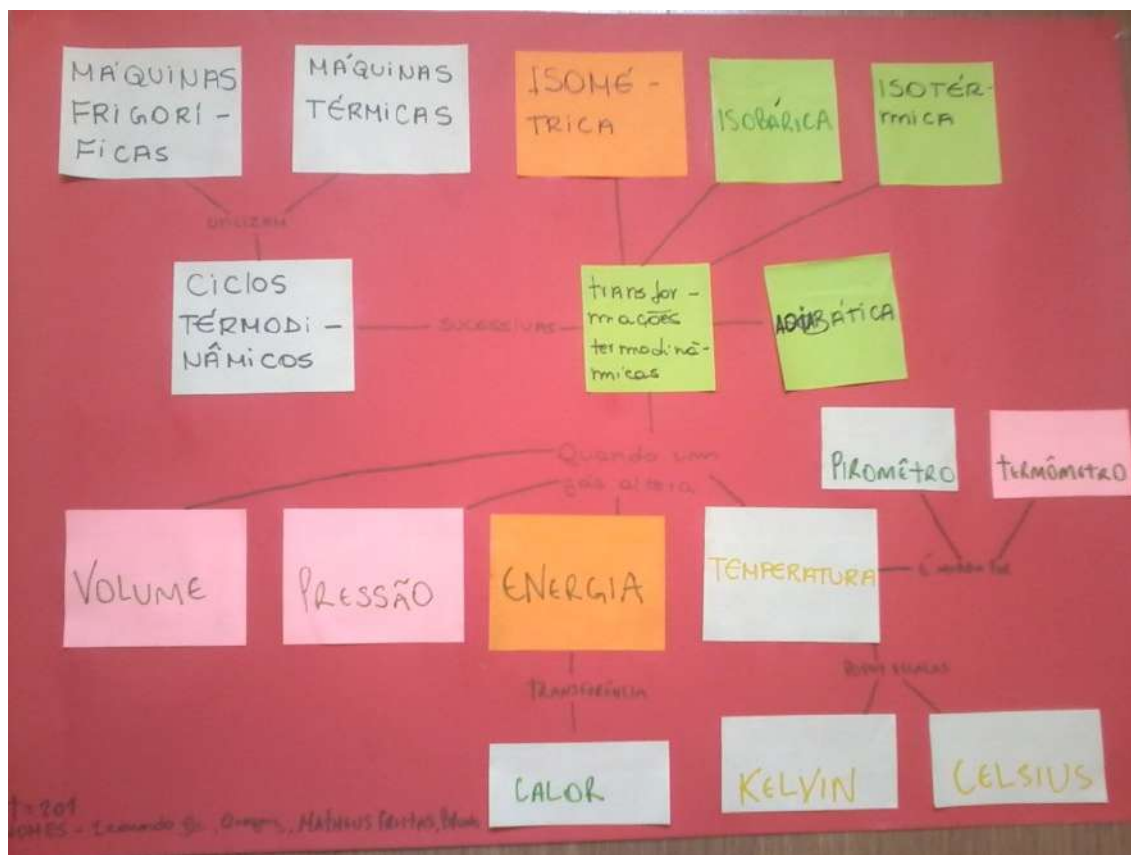 MÁQUINAS
FRIGORÍ-
FICAS
MÁQUINAS
TÉRMICAS
ISOMÉ-
TRICA
ISOBÁRICA
ISOTÉR-
mica
UTILIZAM
CICLOS
TÉRMODI-
NÂMICOS
SUCESSIVAS
transfor-
mações
termodinâ-
micas
ADIABÁTICA
Quando um
gás altera
PIROMÊTRO
TERMÔMETRO
VOLUME
PRESSÃO
ENERGIA
TEMPERATURA
TRANSFERÊNCIA
ESCALAS
CALOR
KELVIN
CELSIUS
201
NOMES - Leonardo, MATHEUS FREITAS